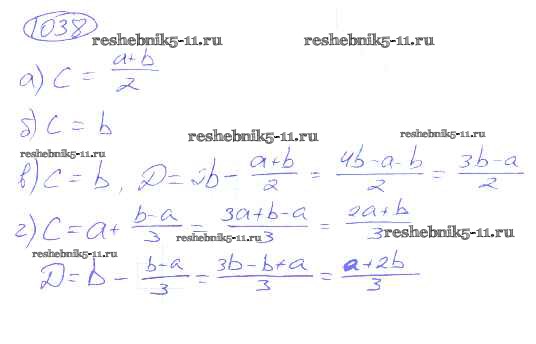 1038
reshebnik5-11.ru reshebnik5-11.ru
а) C = (a+b)/2
б) C = b
reshebnik5-11.ru reshebnik5-11.ru
reshebnik5-11.ru
в) C = b, D = 2b - (a+b)/2 = (4b-a-b)/2 = (3b-a)/2
г) C = a + (b-a)/3 = (3a+b-a)/3 = (2a+b)/3
reshebnik5-11.ru reshebnik5-11.ru
reshebnik5-11.ru
D = b - (b-a)/3 = (3b-b+a)/3 = (a+2b)/3
reshebnik5-11.ru